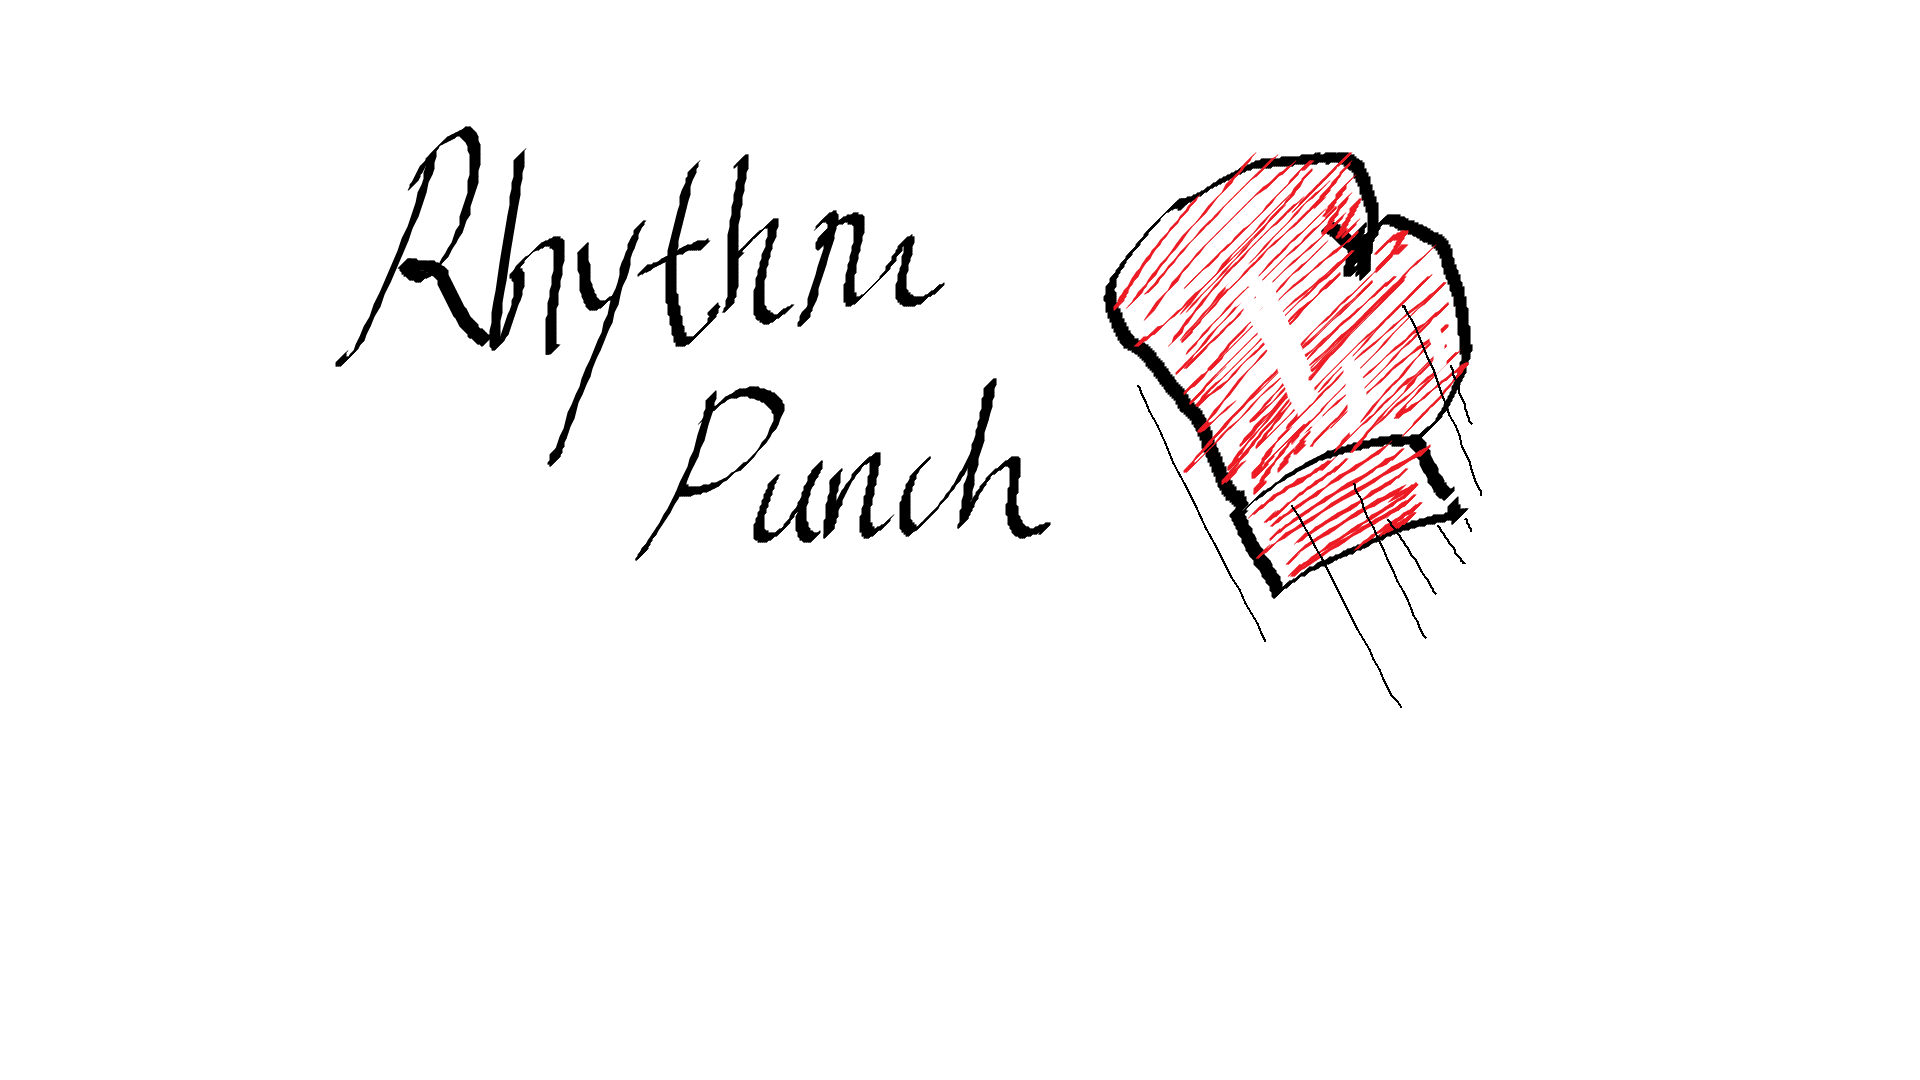 Rhythm
Punch